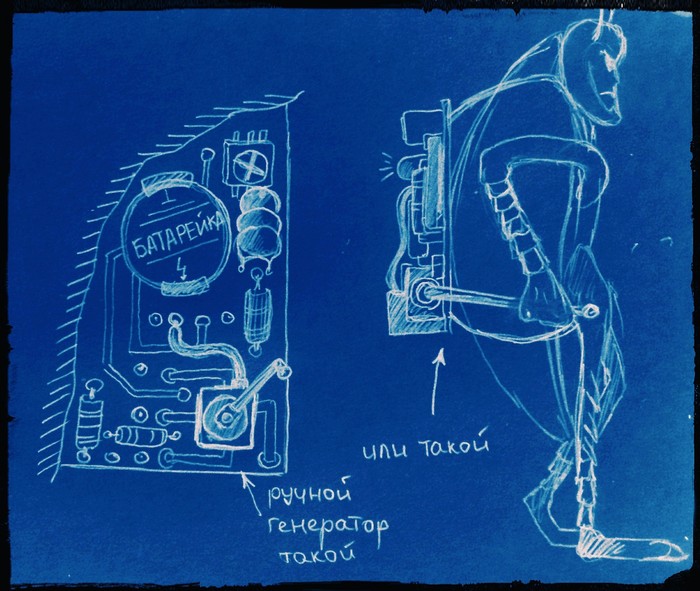 БАТАРЕЙКА
или такой
ручной
генератор
такой